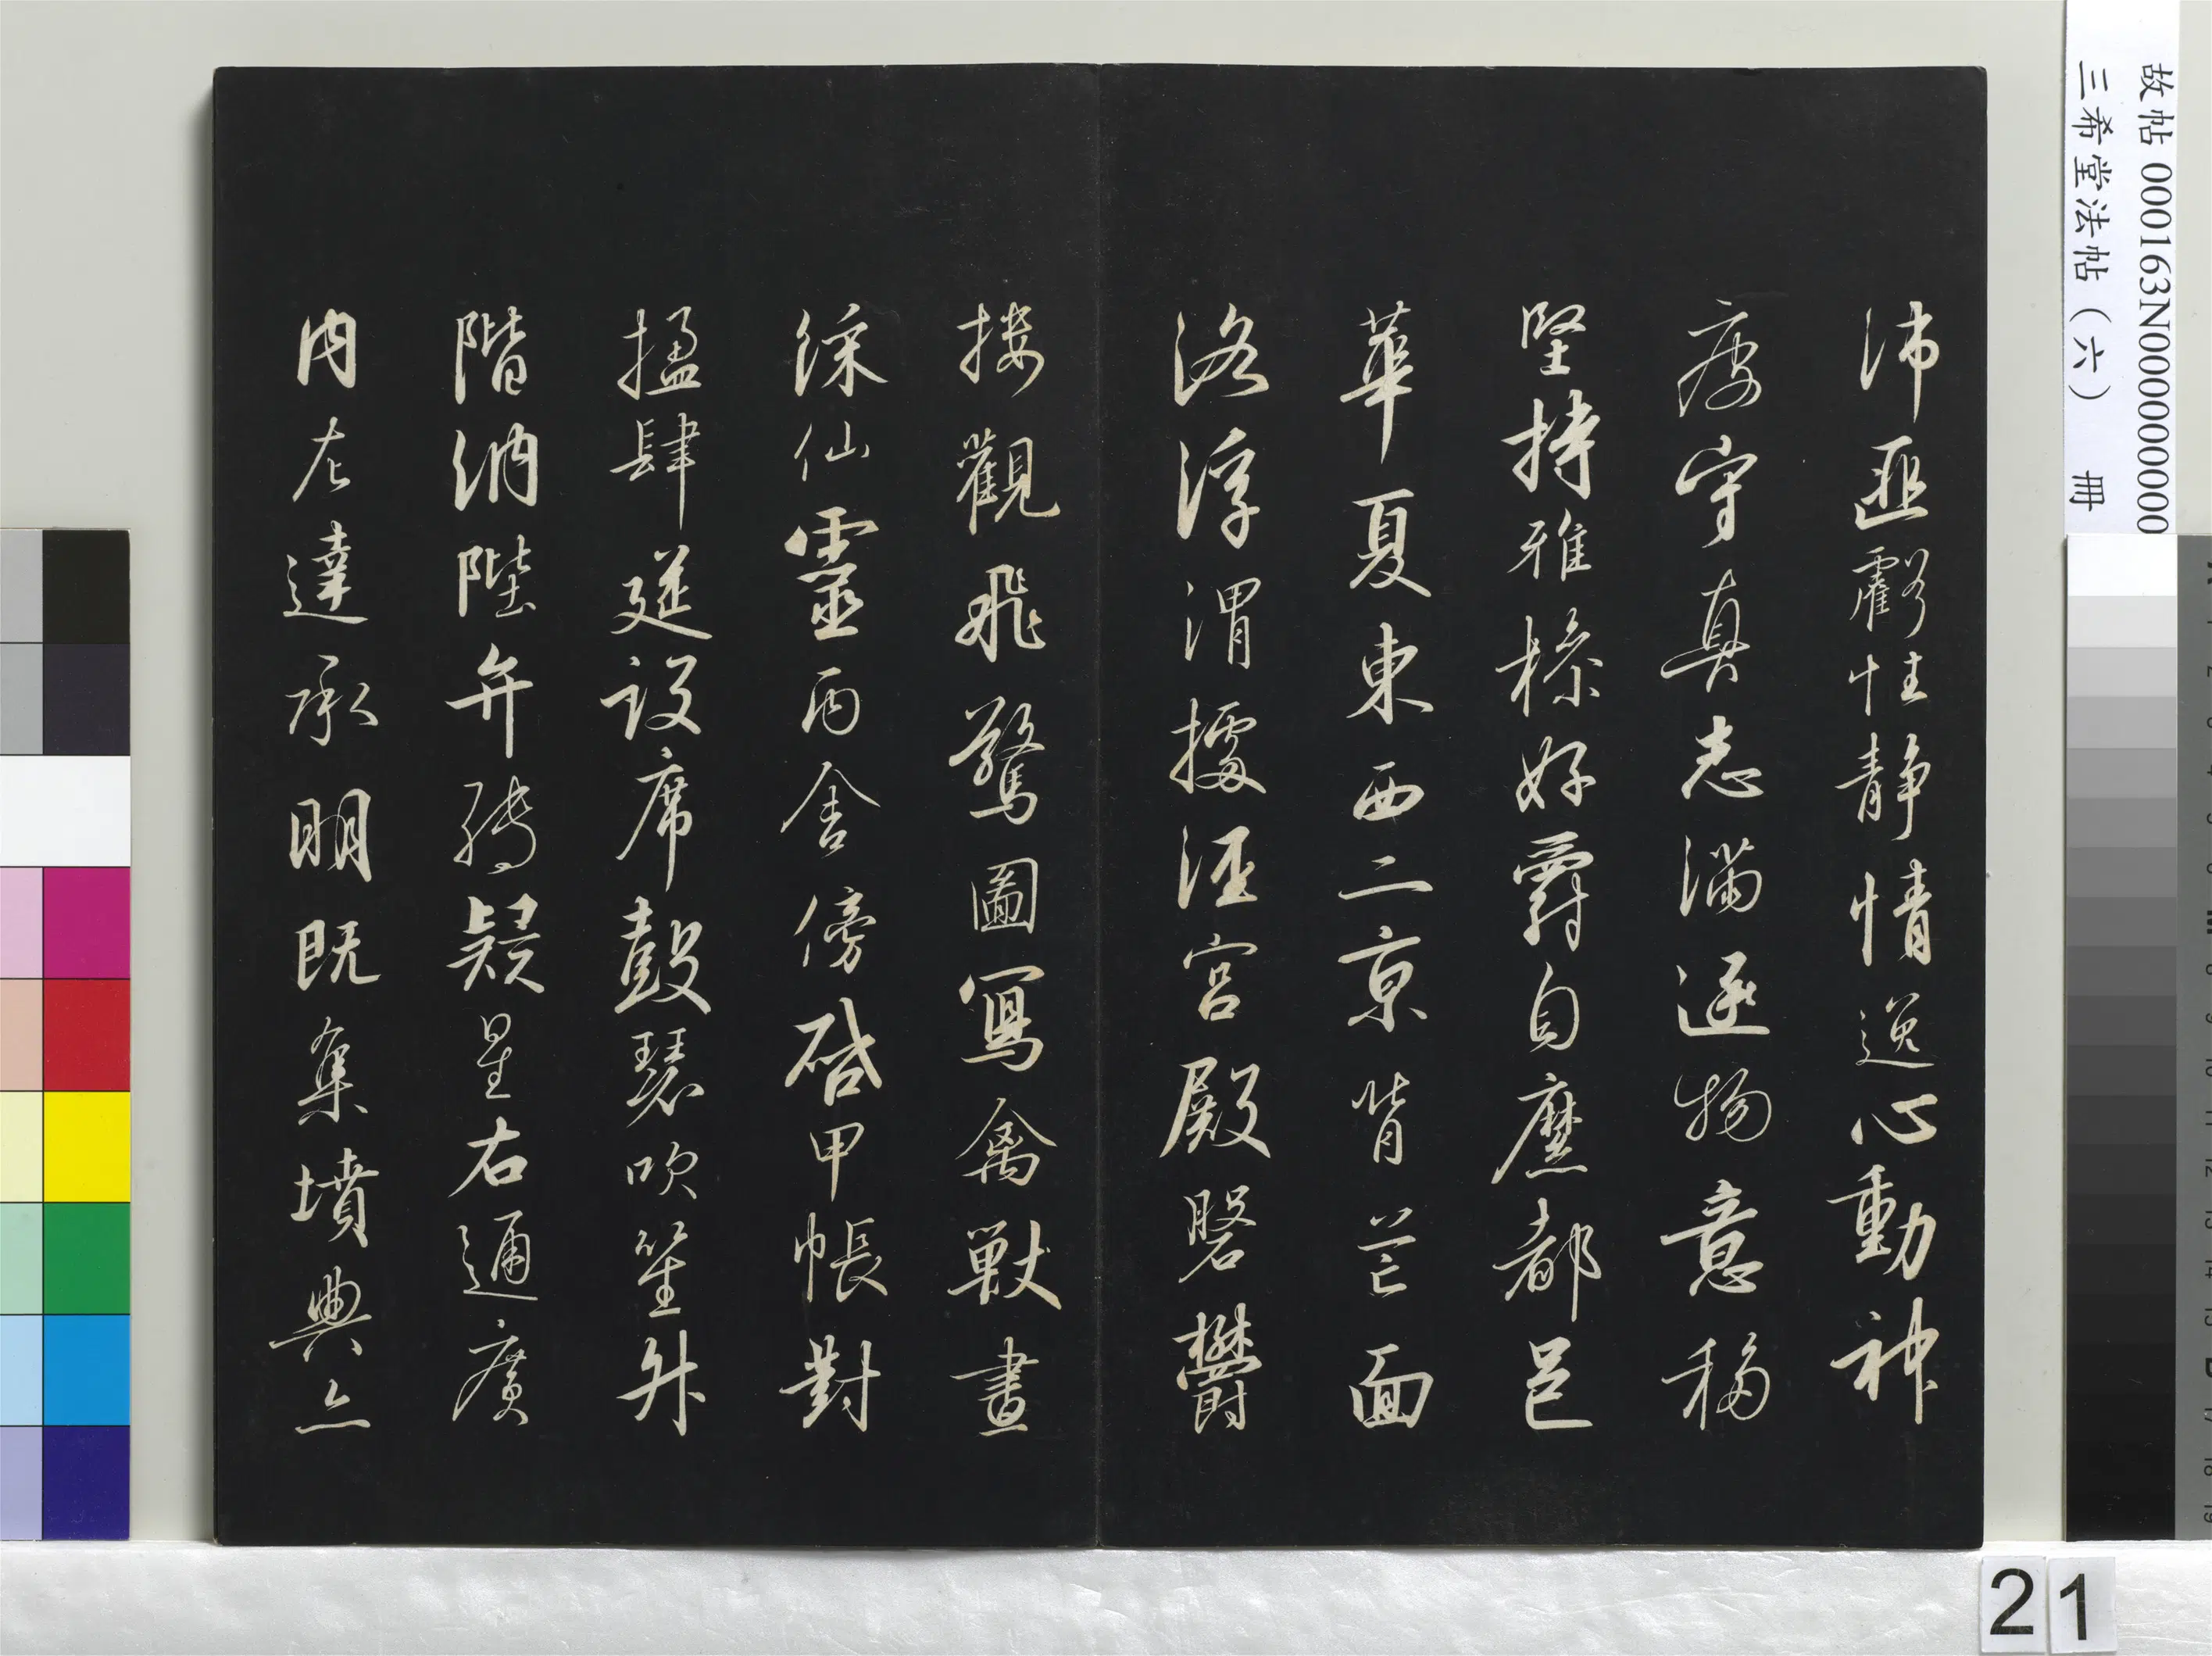 沛匪虧性静情逸心動神
疲守真志滿逐物意移
堅持雅操好爵自縻都邑
華夏東西二京背芒面
洛浮渭據涇宫殿磐欝
樓觀飛驚圖寫禽獸畫
綵仙靈丙舍傍啓甲帳對
楹肆筵設席鼓瑟吹笙升
階納陛弁轉疑星右通廣
内左達承明既集墳典亦
故帖 000163N000000000
三希堂法帖（六） 冊
21